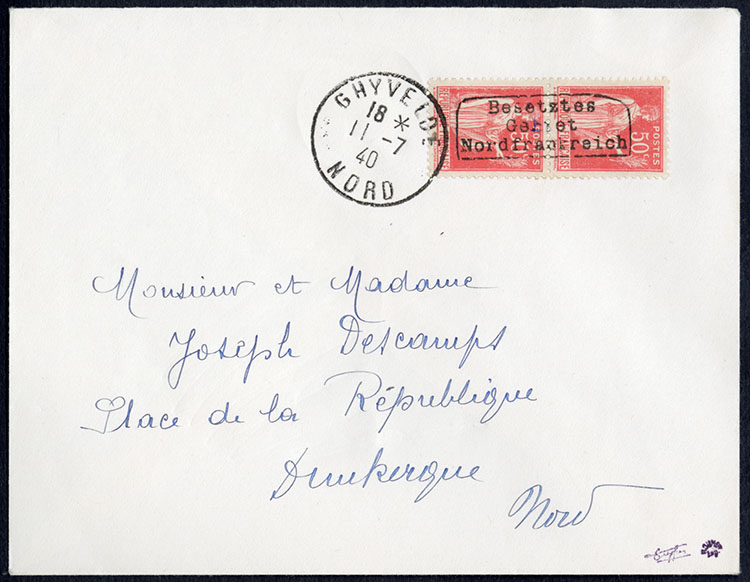 GHYVELDE
18 *
11 -7
40
NORD
Besetztes
Gebiet
Nordfrankreich
POSTES
50c
Monsieur et Madame
Joseph Descamps
Place de la République
Dunkerque
Nord